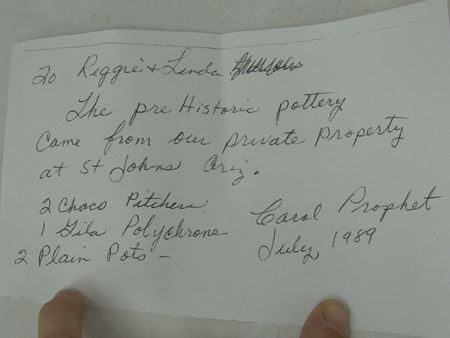 To Reggie & Linda
The pre Historic pottery
Came from our private property
at St Johns Ariz.
2 Chaco Pitchers
1 Gila Polychrone
2 Plain Pots -
Carol Prophet
July, 1989